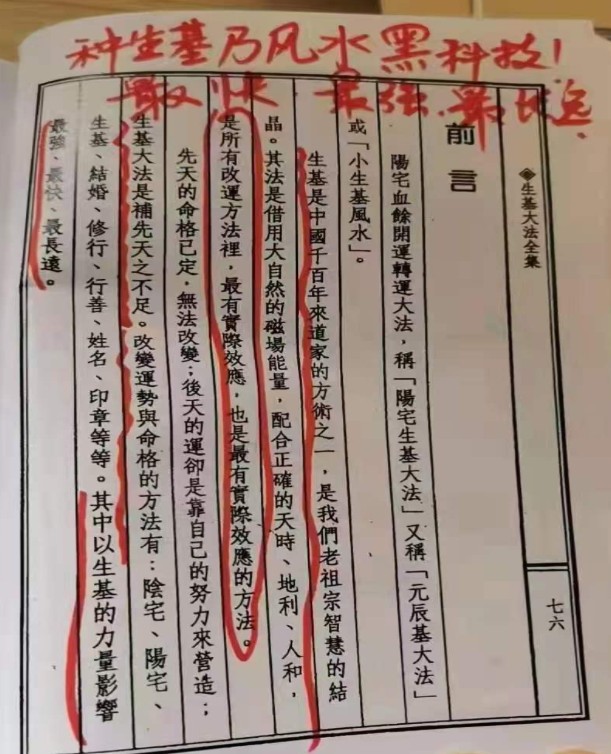 种生基乃风水黑科技!
最快.最强.最长远.
◈生基大法全集
七六
前言
陽宅血餘開運轉運大法,稱「陽宅生基大法」又稱「元辰基大法」
或「小生基風水」。
生基是中國千百年來道家的方術之一,是我們老祖宗智慧的結
晶。其法是借用大自然的磁場能量,配合正確的天時、地利、人和,
是所有改運方法裡,最有實際效應,也是最有實際效應的方法。
先天的命格已定,無法改變;後天的運卻是靠自己的努力來營造;
生基大法是補先天之不足。改變運勢與命格的方法有:陰宅、陽宅、
生基、結婚、修行、行善、姓名、印章等等。其中以生基的力量影響
最強、最快、最長遠。